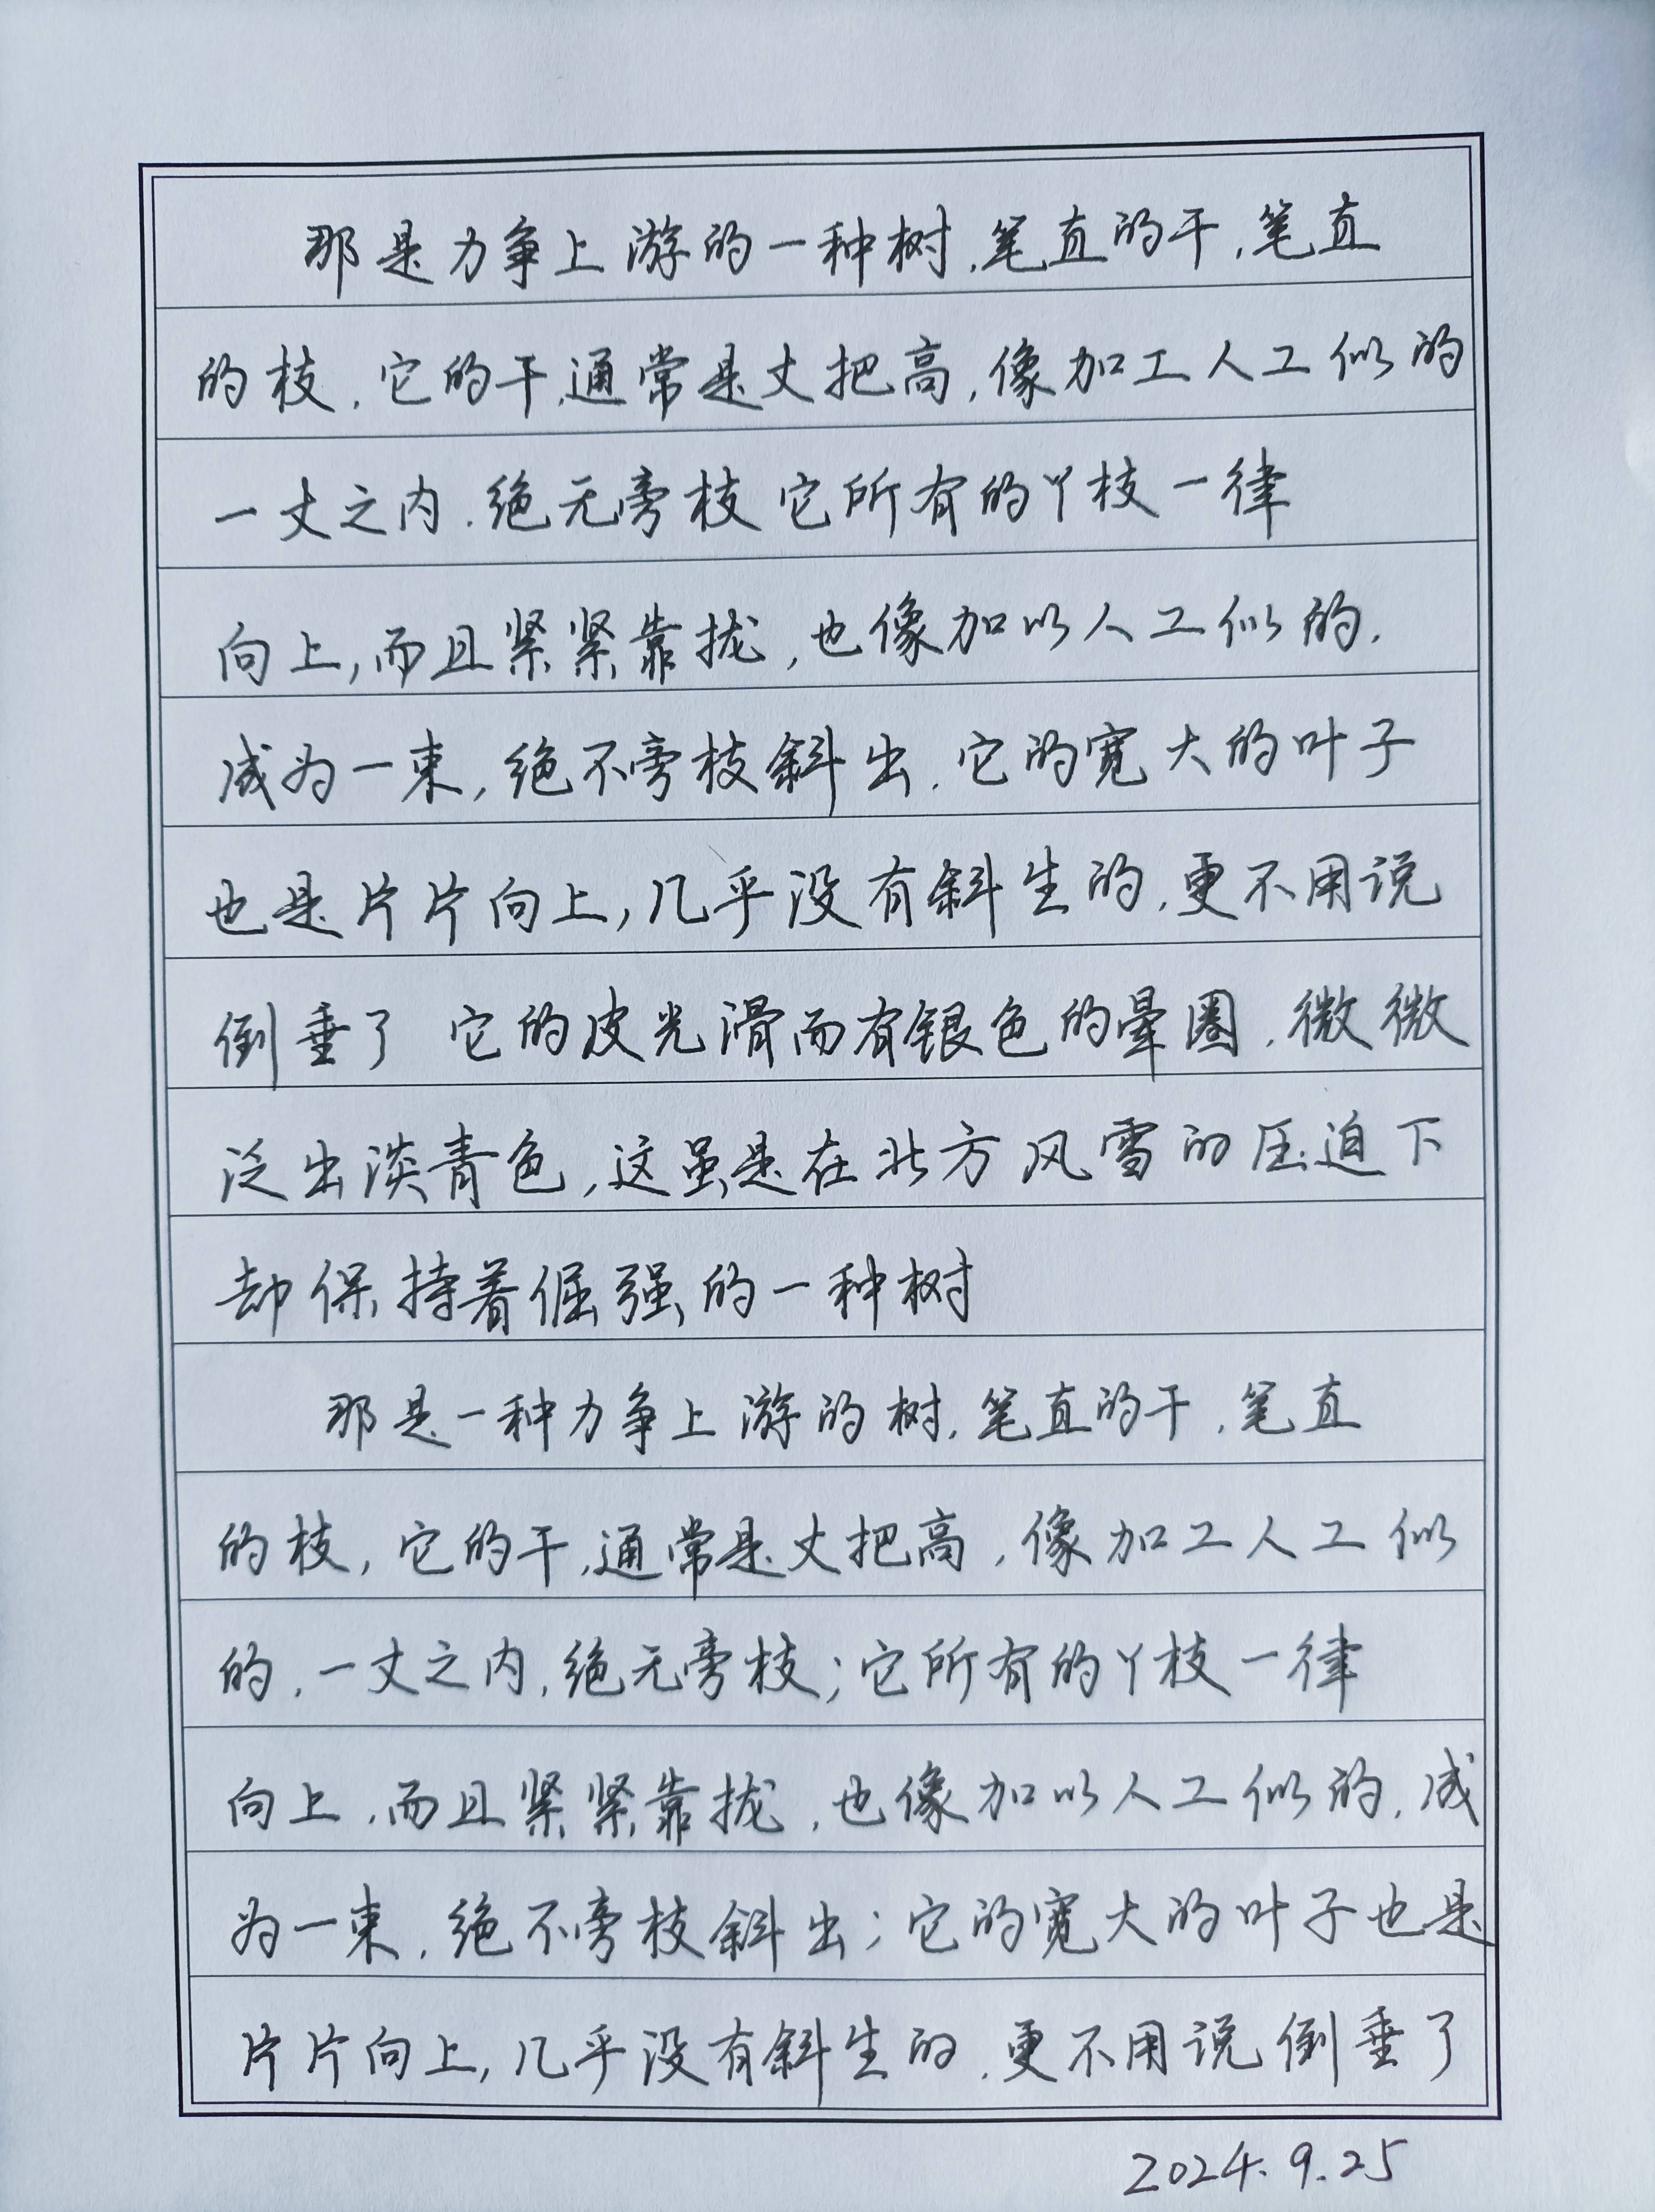 那是力争上游的一种树,笔直的干,笔直
的枝,它的干,通常是丈把高,像加工人工似的
一丈之内,绝无旁枝 它所有的丫枝一律
向上,而且紧紧靠拢,也像加以人工似的,
成为一束,绝不旁枝斜出,它的宽大的叶子
也是片片向上,几乎没有斜生的,更不用说
倒垂了 它的皮光滑而有银色的晕圈,微微
泛出淡青色,这虽是在北方风雪的压迫下
却保持着倔强的一种树
那是一种力争上游的树,笔直的干,笔直
的枝,它的干,通常是丈把高,像加工人工似
的,一丈之内,绝无旁枝;它所有的丫枝一律
向上,而且紧紧靠拢,也像加以人工似的,成
为一束,绝不旁枝斜出;它的宽大的叶子也是
片片向上,几乎没有斜生的,更不用说倒垂了
2024.9.25